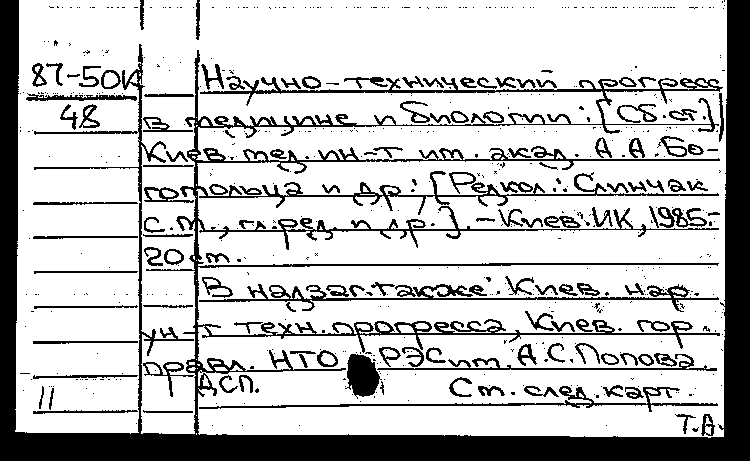 87-50К Научно-технический прогресс
48 в медицине и биологии: [Сб. ст.]
Киев. мед. ин-т им. акад. А. А. Бо-
гомольца и др.; [Редкол.: Слинчак
С. М., гл. ред. и др.]. - Киев: ИК, 1985.-
20 см.
В надзаг. также: Киев. нар.
ун-т техн. прогресса, Киев. гор.
правл. НТО РЭС им. А. С. Попова.
11 ДСП. См. след. карт.
Т. А.